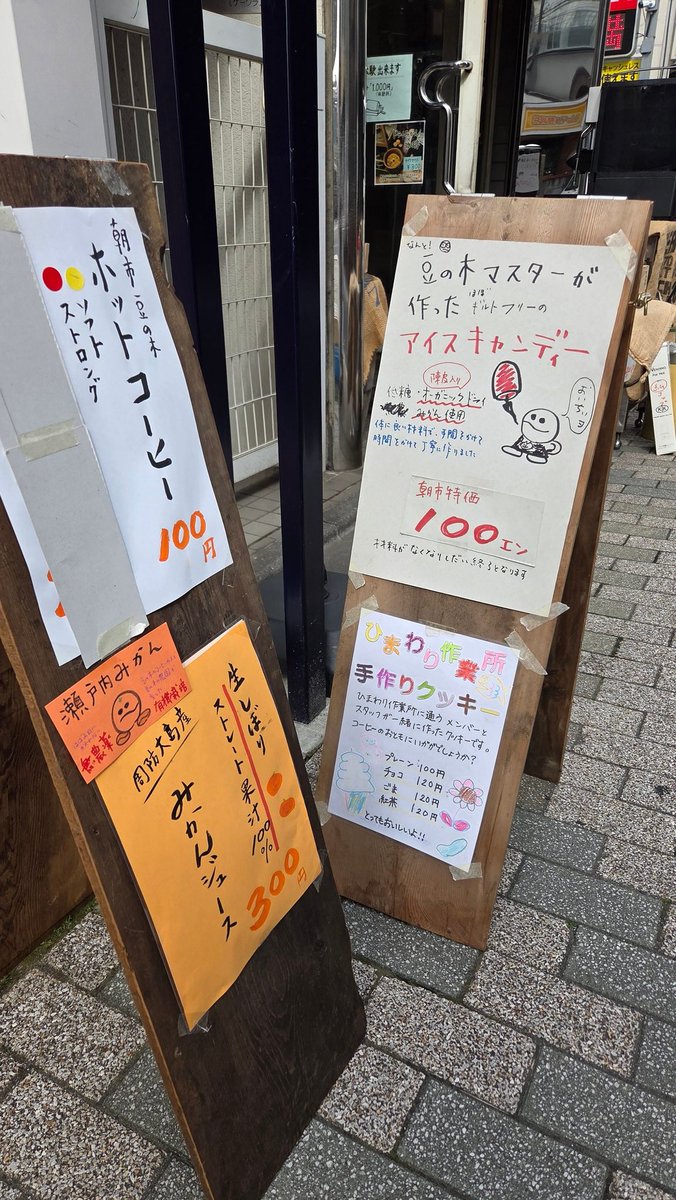 朝市 豆の木
ホットコーヒー
ソフト
ストロング
100円
瀬戸内みかん
無農薬
有機栽培
生しぼり
ストレート果汁100%
周防大島産
みかんジュース
300円
なんと!
豆の木マスターが
作ったほぼギルトフリーの
アイスキャンディー
陳皮入り
低糖・オーガニックドライ
みかん使用
体に良い材料で、手間をかけて
時間をかけて丁寧に作りました
おいちいヨ
朝市特価
100エン
材料がなくなりしだい終了となります
ひまわり作業所
手作りクッキー
ひまわり作業所に通うメンバーと
スタッフが一緒に作ったクッキーです。
コーヒーのおともにいかがでしょうか?
プレーン:100円
チョコ 120円
ごま 120円
紅茶 120円
とってもおいしいよ!!
験出来ます
1,000円
キャッシュレス